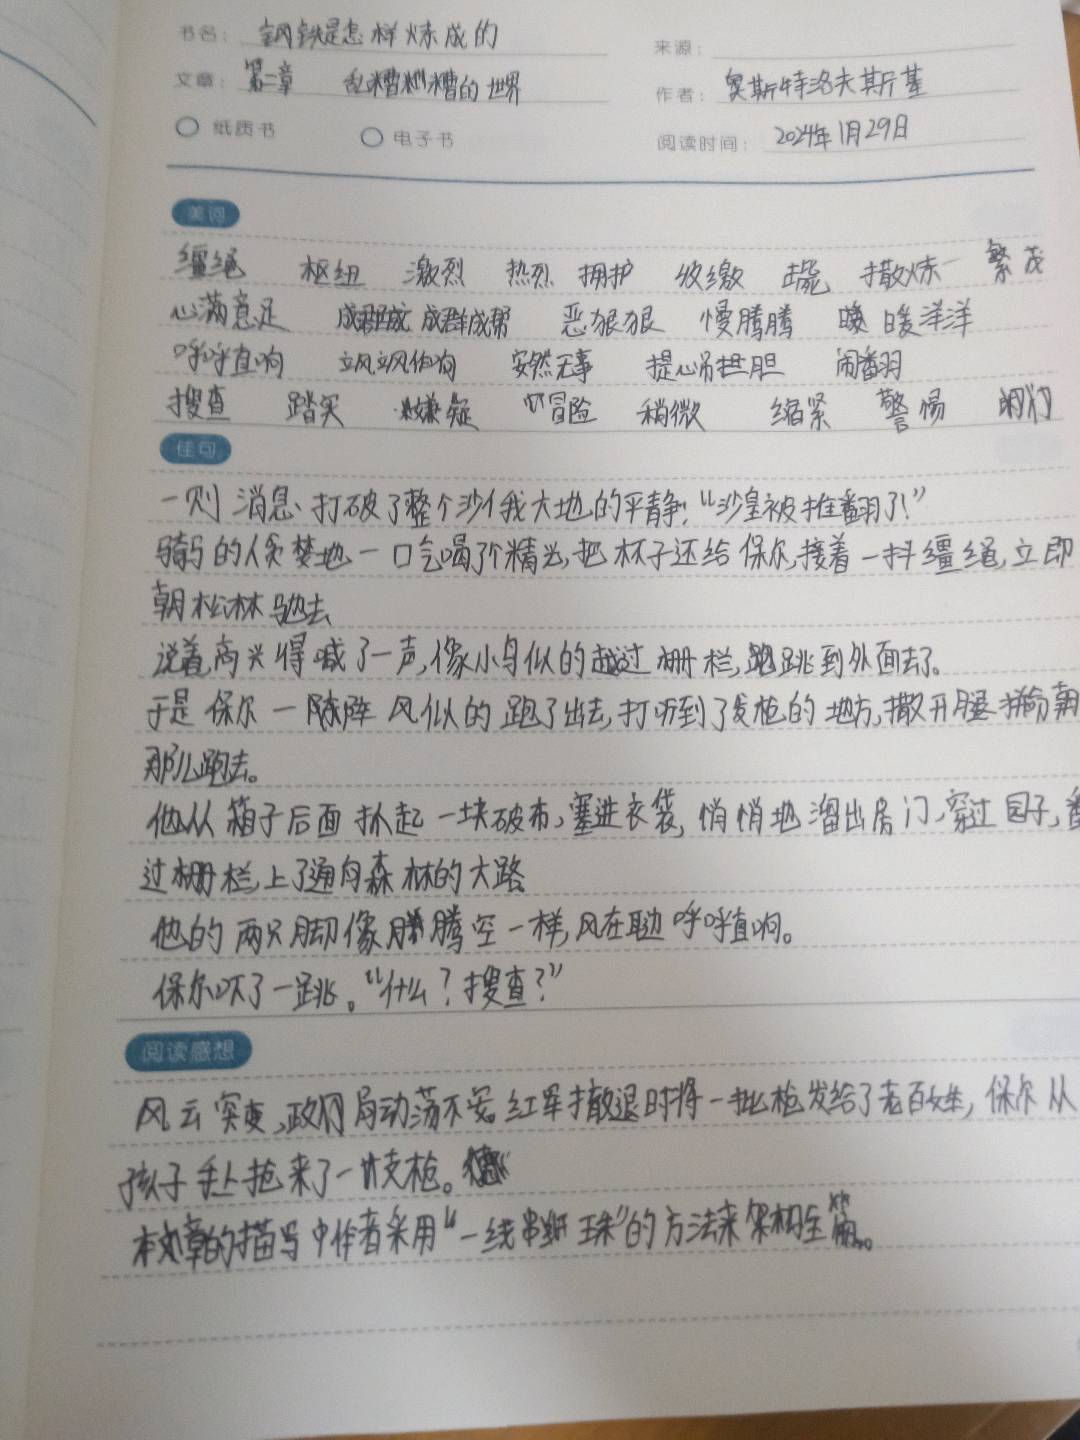 书名: 钢铁是怎样炼成的
来源:
文章: 第二章 乱糟糟的世界
作者: 奥斯特洛夫斯基
纸质书 电子书
阅读时间: 2024年1月29日
美词
缰绳 枢纽 激烈 热烈 拥护 收缴 繁茂
心满意足 成群成帮 恶狠狠 慢腾腾 暖洋洋
呼呼直响 安然无事 提心吊胆 闹翻
搜查 踏实 嫌疑 冒险 稍微 缩紧 警惕
佳句
一则消息、打破了整个沙俄大地的平静!“沙皇被推翻了!”
骑马的人贪婪地一口气喝了个精光,把杯子还给保尔,接着一抖缰绳,立即
朝松林驰去
说着高兴得喊了一声,像小鸟似的越过栅栏,跳到外面去了。
于是保尔一阵风似的跑了出去,打听到了发枪的地方,撒开腿朝
那儿跑去。
他从箱子后面扒起一块破布,塞进衣袋,悄悄地溜出房门,穿过园子,
过栅栏,上了通向森林的大路
他的两只脚像腾空一样,风在耳边呼呼直响。
保尔吓了一跳。“什么?搜查?”
阅读感想
风云突变,政府局动荡不安。红军撤退时将一批枪发给了老百姓,保尔从
孩子手上抢来了一支枪。
本文章的描写中作者采用“一线串珠”的方法来架构全篇。